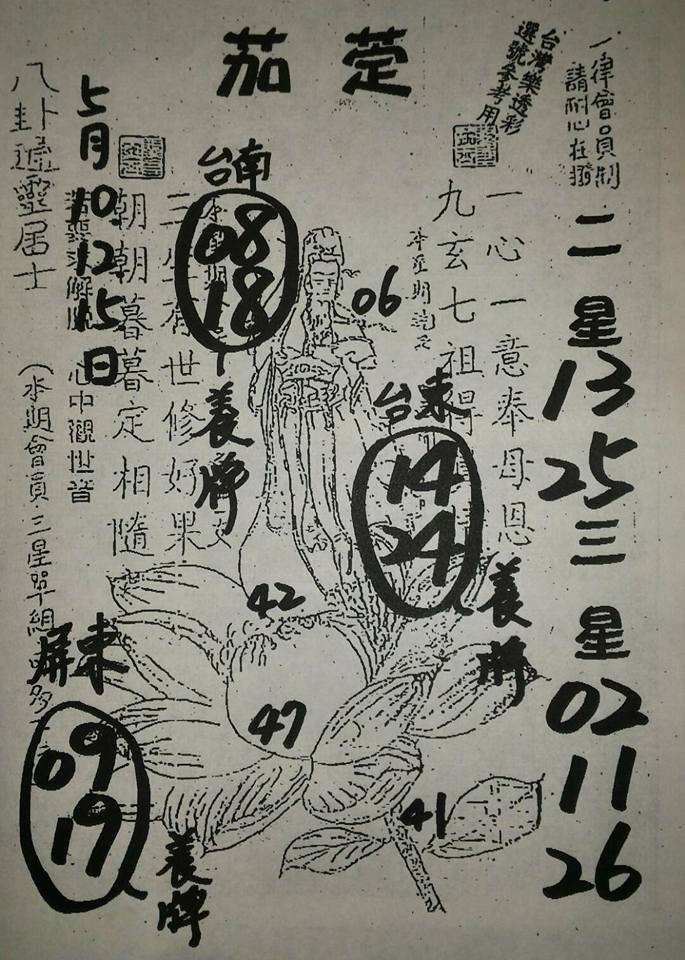 茄萣
台灣樂透彩
選號參考用
一律會員制
請耐心在撥
二星
13
25
三星
02
11
26
一心一意奉母恩
九玄七祖得
06
台東
14
24
養牌
台南
08
18
養牌
世修好果
朝朝暮暮定相隨
心中觀世音
5月10.12.15日
八卦
靈居士
(本期會員三星單組
屏東
09
19
養牌
42
47
41